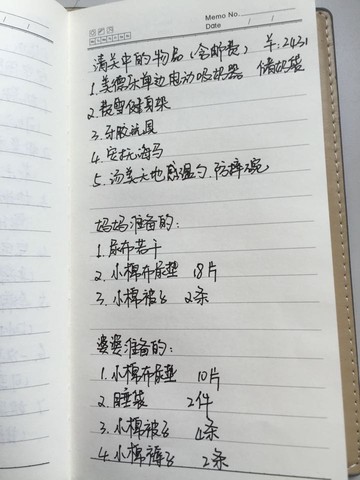 Memo No.
Date / /
清关中的物品(含邮费) 羊:2431
1.美德乐单边电动吸奶器 储奶袋
2.费雪健身架
3.牙胶玩具
4.安抚海马
5.汤美天地感温勺.防摔碗
妈妈准备的:
1.尿布若干
2.小棉布尿垫 18片
3.小棉被子 2条
婆婆准备的:
1.小棉布尿垫 10片
2.睡袋 2件
3.小棉被子 4条
4.小棉褥子 2条